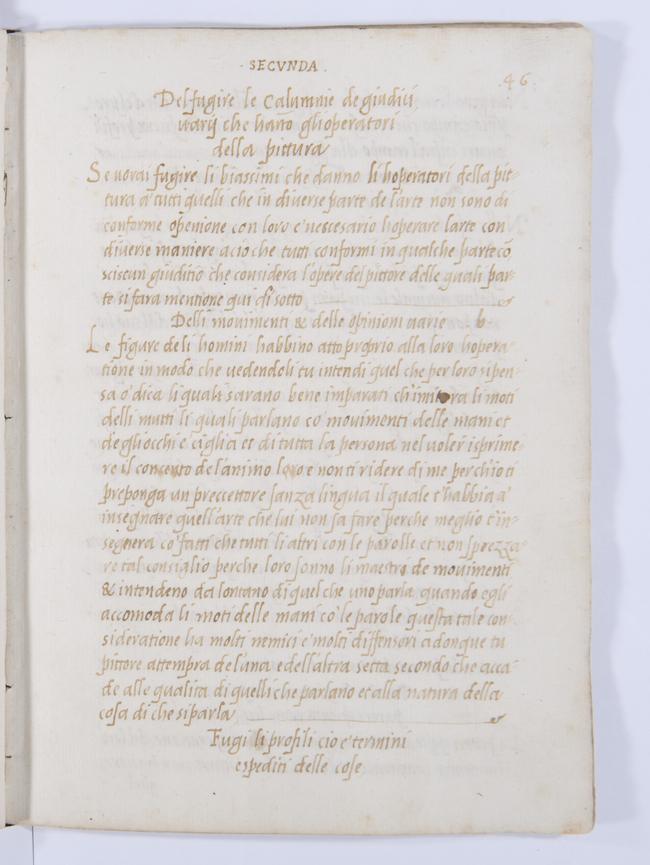 · SECVNDA ·
46
Del fugire le Calumnie de giudici
uarij che hano glioperatori
della pittura
Se uorai fugire li biassimi che danno li hoperatori della pit-
tura a tutti quelli che in diuerse parte de larte non sono di
conforme openione con loro e nescesario hoperare larte con
diuerse maniere acioche tutti conformi in qualche parte cō
sciscun giuditio che considera l'opere del pittore delle quali par-
te si fara mentione qui di sotto
Delli mouimenti & delle opinioni uarie . b
Le figure deli homini habbino atto proprio alla loro hopera-
tione in modo che vedendoli tu intendi quel che per loro si pen-
sa o dica li quali sarano bene imparati ch'imitera li moti
delli mutti li quali parlano co mouimenti delle mani et
de gliocchi e ciglia et di tutta la persona nel uoler isprime-
re il concetto de l'animo loro e non ti ridere di me perch'io ti
preponga un preccettore sanza lingua il quale t'habbia a'
insegnare quell'arte che lui non sa fare perche meglio t'in-
segnera co fatti che tutti li altri con le parolle et non sprezza-
re tal consiglio perche loro sonno li maestri de mouimenti
& intendeno da lontano di quel che uno parla quando egli
accomoda li moti delle mani co le parole questa tale con-
sideratione ha molti nemici e molti diffensori adonque tu
pittore attempra de l'una e dell'altra setta secondo che acca-
de alle qualita di quelli che parlano et alla natura della
cosa di che si parla
Fugi li profili cio e termini
espediti delle cose